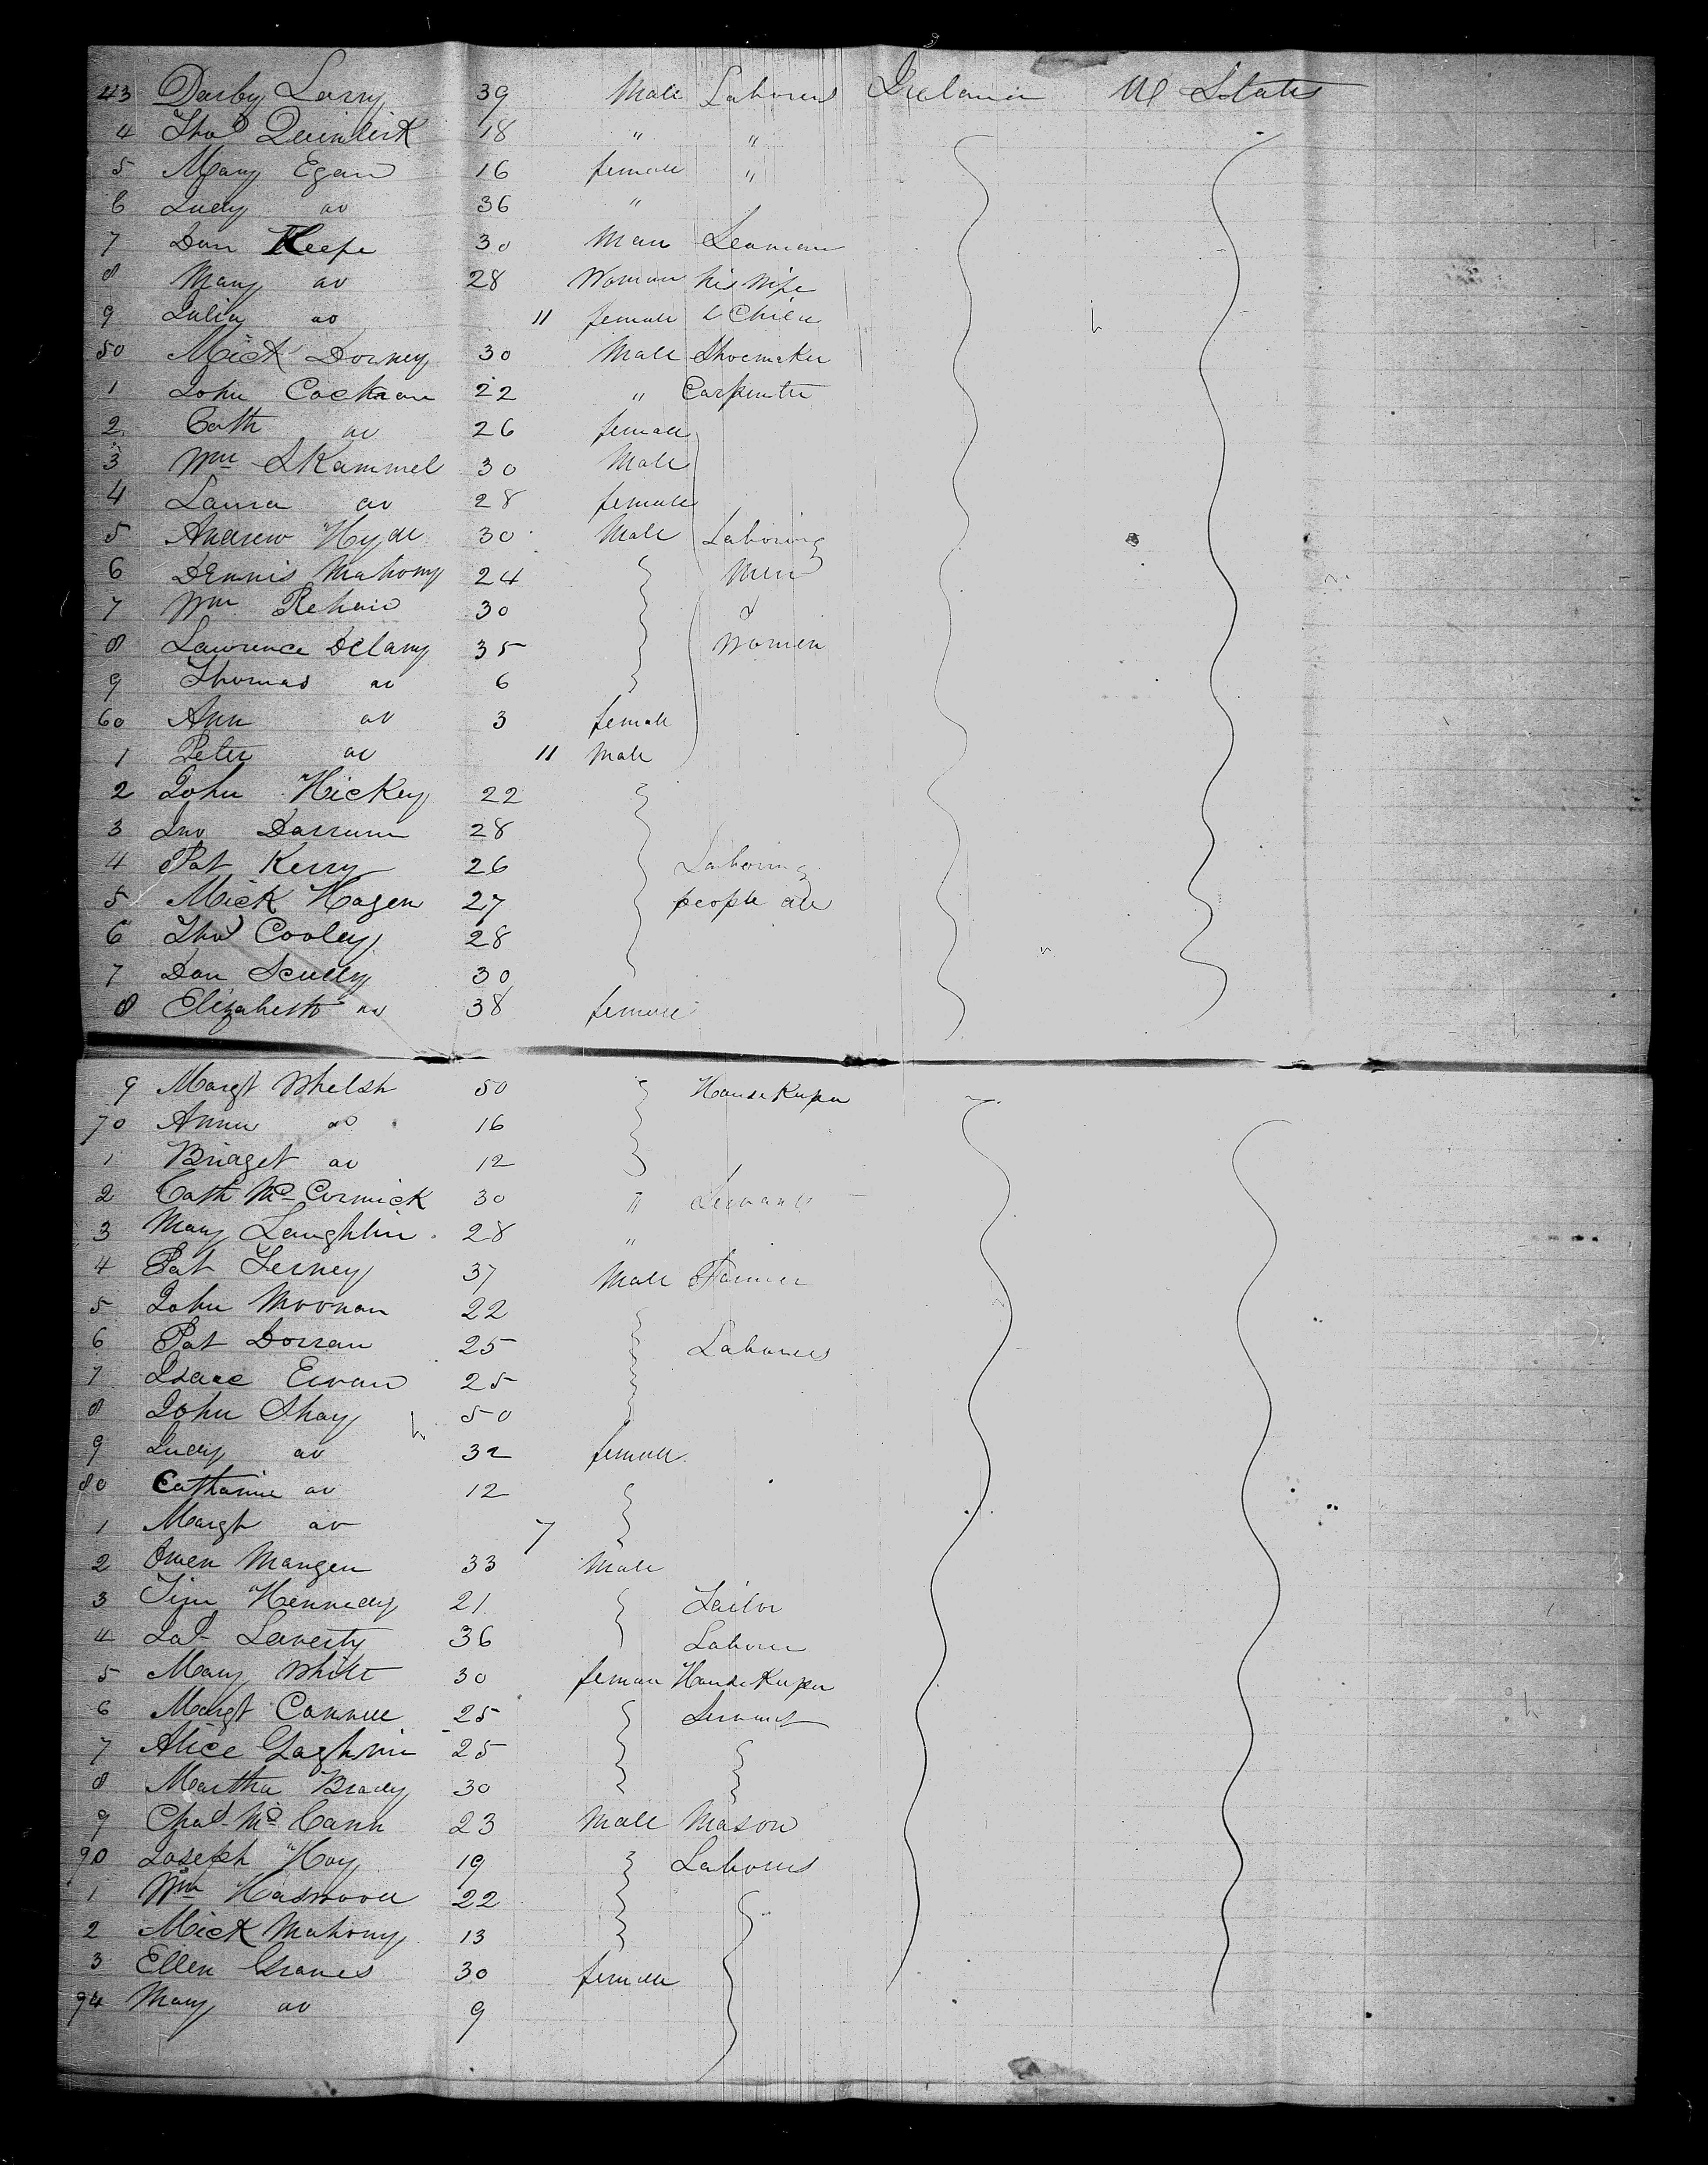 43 Darby Larry 39 Male Laborers Ireland U States
4 Thos 18 " "
5 Mary Egan 16 female "
6 Judy do 36 "
7 Dan Keefe 30 Man Seaman
8 Mary do 28 Woman his Wife
9 Julia do 11 female & Child
50 Mick Dorney 30 Male Shoemaker
1 John Cochran 22 " Carpenter
2 Cath do 26 female
3 Wm Skammel 30 Male
4 Laura do 28 female
5 Andrew Hyde 30 Male Laboring
6 Dennis Mahony 24 Men
7 Wm 30 &
8 Lawrence Delany 35 Women
9 Thomas do 6
60 Ann do 3 female
1 Peter do 11 Male
2 John Hickey 22
3 Jno 28
4 Pat Kerry 26 Laboring
5 Mick Hagen 27 people all
6 Thos Cooley 28
7 Dan Scully 30
8 Elizabeth do 38 female
9 Margt Whelsh 50 House Keeper
70 Annie do 16
1 Bridget do 12
2 Cath McCormick 30 " Servants
3 Mary Laughlin 28 "
4 Pat 37 Male Farmer
5 John Moonan 22
6 Pat Dorran 25 Laborers
7 Isaac 25
8 John Shay 50
9 Judy do 32 female
80 Catharine do 12
1 Margt do 7
2 Owen Mangen 33 Male
3 Tim Kennedy 21 Tailor
4 Laverty 36 Laborer
5 Mary White 30 female House Keeper
6 Margt Connell 25 Servant
7 Alice 25
8 Martha Brady 30
9 Chas McCann 23 Male Mason
90 Joseph Hoy 19 Laborers
1 Wm 22
2 Mick Mahony 13
3 Ellen Graves 30 female
94 Mary do 9